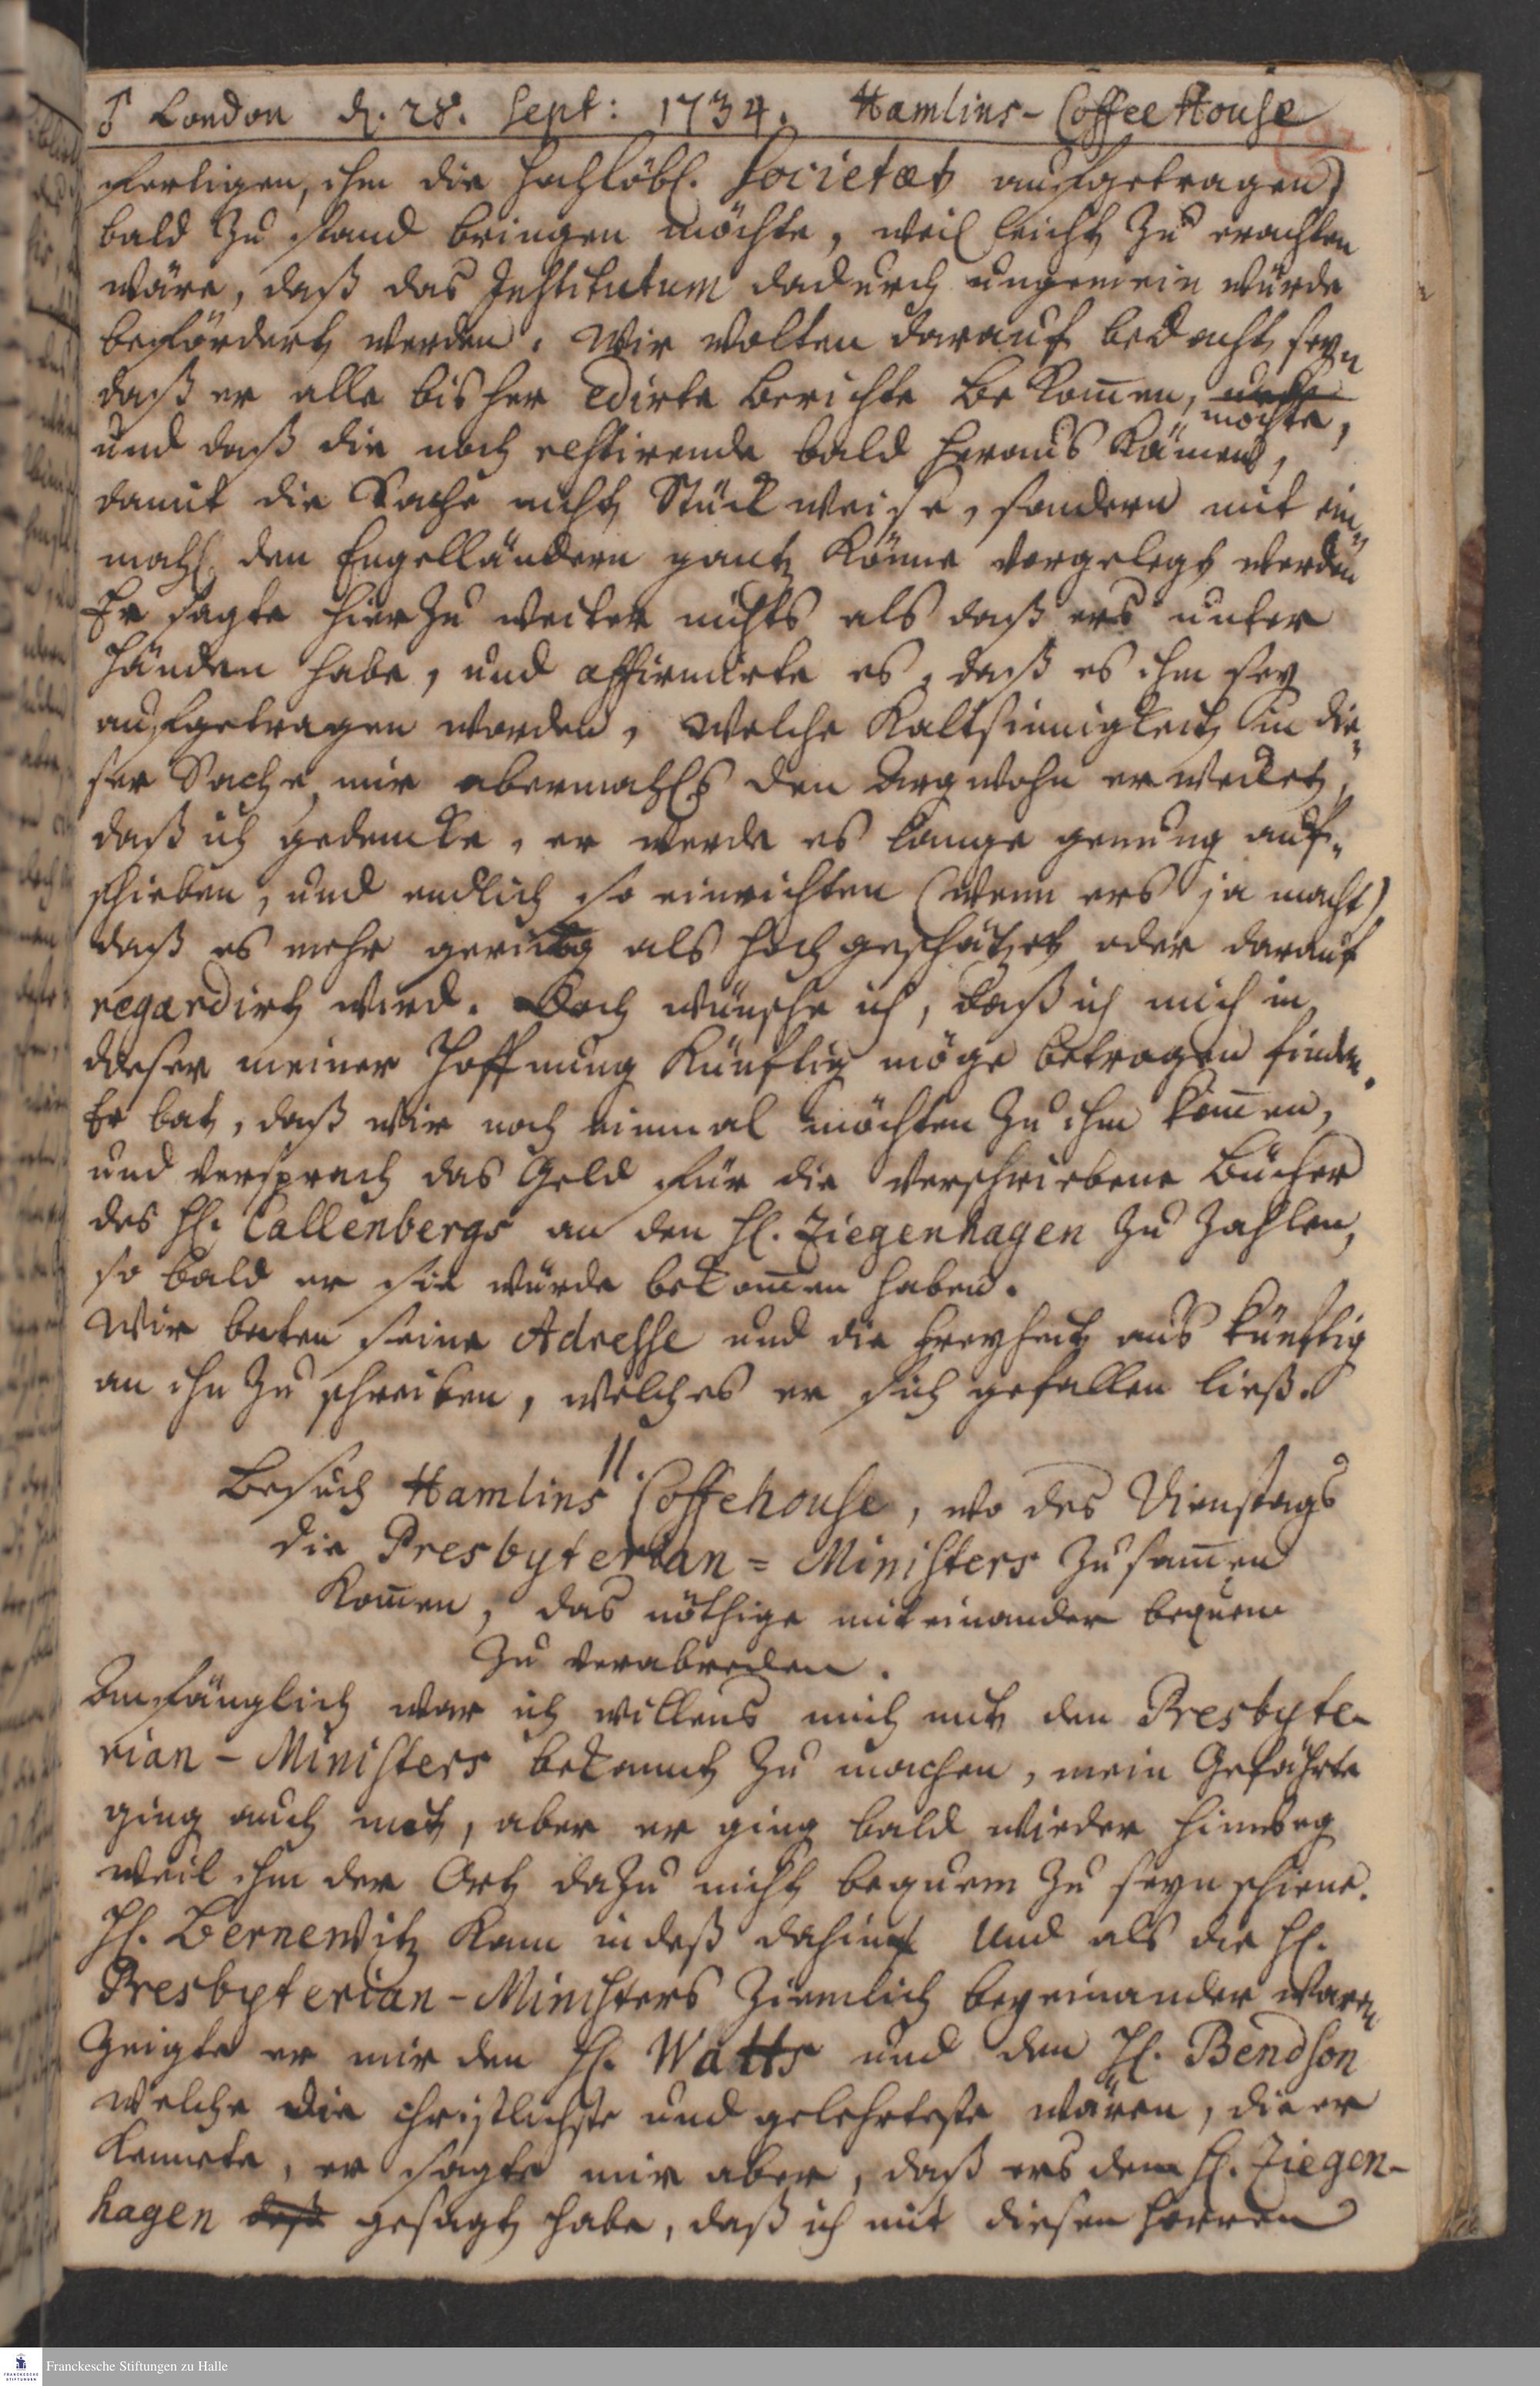 ♂ London d. 28. Sept: 1734. Hamlins-Coffee House
fertigen, ihm die hochlöbl. Societæt aufgetragen)
bald zu stand bringen möchte, weil leicht zu erachten
wäre, daß das Institutum dadurch ungemein würde
befördert werden. Wir wolten darauf bedacht seyn
daß er alle bisher edirte Berichte bekom̄en,
möchte,
und daß die noch restirende bald heraus kämen,
damit die Sache nicht Stückweise, sondern mit ein„
mahl den Engelländern gantz könne vorgelegt werden
Er sagte hierzu weiter nichts als daß ers unter
Händen habe, und affirmirte es, daß es ihm sey
aufgetragen worden, welche Kaltsinnigkeit in die„
ser Sache, mir abermahls den Argwohn erwecket,
daß ich gedencke, er werde es lange genung auf„
schieben, und endlich so einrichten (wenn ers ja macht)
daß es mehr gering als hoch geschätzet oder darauf
regardirt wird. Doch wünsche ich, daß ich mich in
dieser meiner Hoffnung künftig möge betrogen finden.
Er bat, daß wir noch einmal möchten zu ihm kom̄en,
und versprach das Geld für die verschriebene Bücher
des H. Callenbergs an den H. Ziegenhagen zu zahlen,
so bald er sie würde bekom̄en haben.
Wir baten seine Adresse und die Freyheit aus künftig
an ihn zu schreiben, welches er sich gefallen ließ.
11.
Besuch Hamlins Coffehouse, wo des Dienstags
die Presbyterian = Ministers zusam̄en
kom̄en, das nöthige mit einander bequem
zu verabreden.
Anfänglich war ich willens mich mit den Presbyte-
rian - Ministers bekannt zu machen, mein Gefährte
ging auch mit, aber er ging bald wieder hinweg
weil ihm der Ort dazu nicht bequem zu seyn schiene.
H. Bernewitz kam indeß dahin Und als die H.
Presbyterian - Ministers ziemlich beyeinander waren
zeigte er mir den H. Watts und den H. Bendson
welche die christlichste und gelehrteste wären, die er
kennete, er sagte mir aber, daß ers dem H. Ziegen-
hagen daß gesagt habe, daß ich mit diesen Herren
Franckesche Stiftungen zu Halle